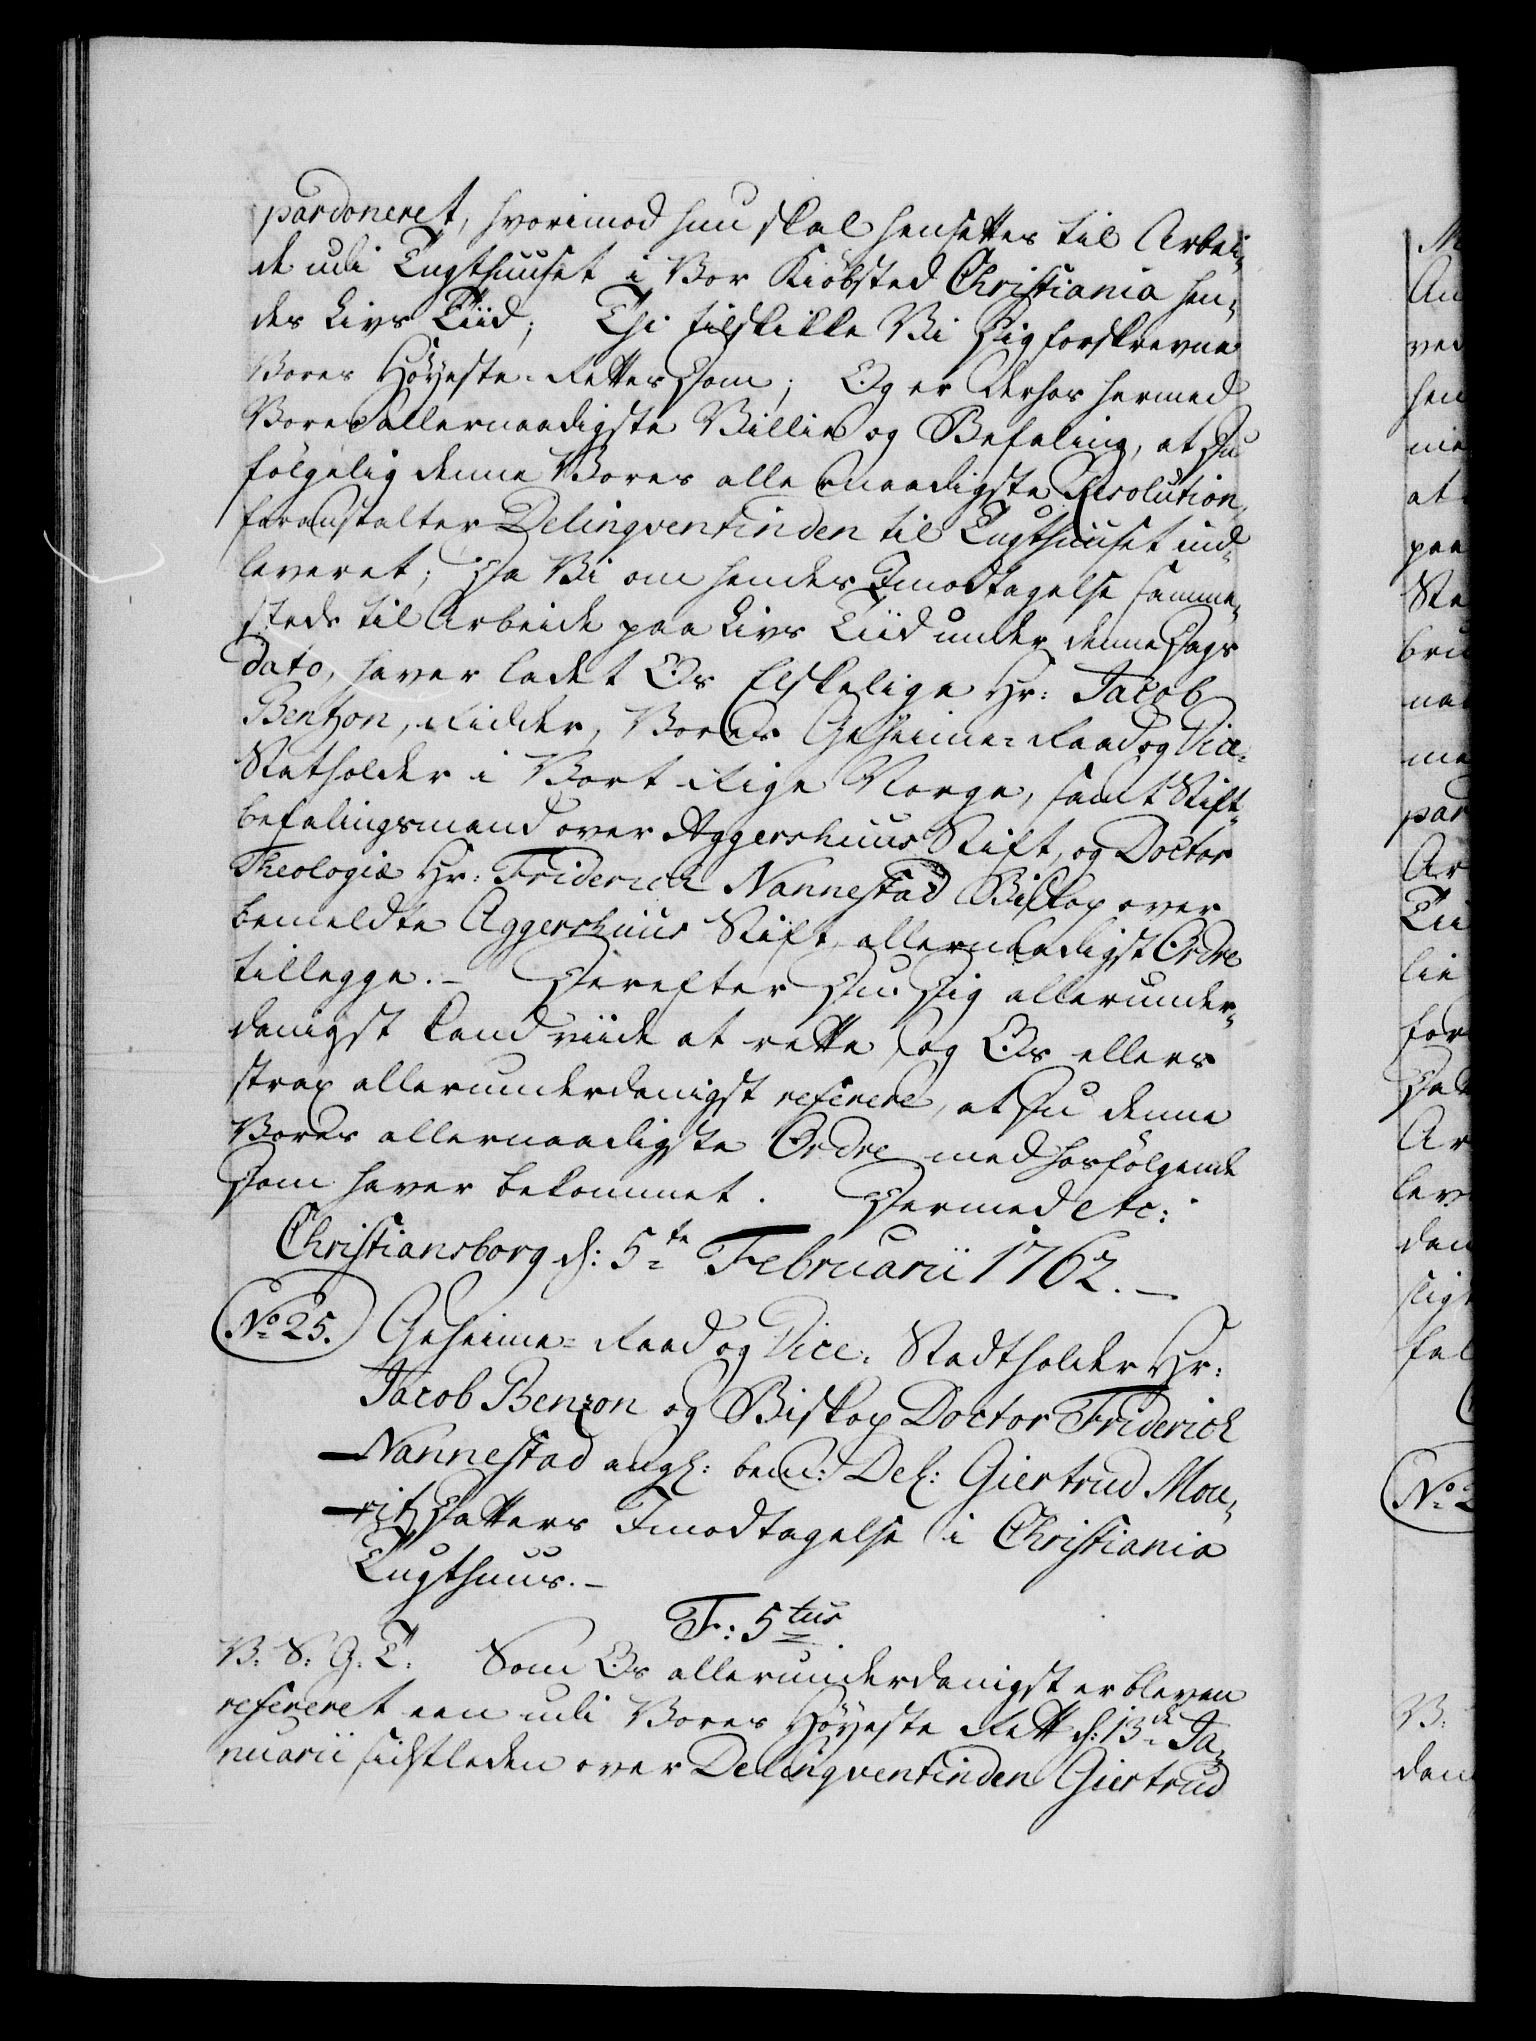 pardoneret, hvorimod hun skal hensættes til Arbei¬
de udi Tugthuuset i Vor Kiöbsted Christiania hen¬
des Livs Tiid; Thi tilskikke Vi Dig forskrevne
Vores Höyeste-Rettes Dom; Og er derhos hermed
Vores allernaadigste Villie og Befaling, at Du
fölgelig denne Vores allernaadigste Resolution,
foranstalter Delinqventinden til Tugthuuset ind¬
leveret; Da Vi om hendes Imodtagelse samme¬
steds til Arbeide paa Livs Tiid under denne Dags
dato, haver ladet Os Elskelige Hr: Jacob
Bentzon, Ridder, Vores Geheime-Raad og Vice-
Statholder i Vort Rige Norge, samt Stift¬
befalingsmand over Aggershuus Stift, og Doctor
Theologiæ Hr: Friderich Nannestad Biskop over
bemeldte Aggershuus Stift, allernaadigst Ordre
tillegge.- Derefter Du Dig allerunder¬
danigst kand viide at rette, og Os ellers
strax allerunderdanigst referere, at Du denne
Vores allernaadigste Ordre med hosfölgende
Dom haver bekommet. Dermed etc:
Christiansborg d: 5te Februarii 1762.-
No 25. Geheime-Raad og Vice-Stadtholder Hr:
Jacob Benzon og Biskop Doctor Friderich
Nannestad angl: bemt: Del: Giertrud Mou¬
ritzDatters Imodtagelse i Christiania
Tugthuus.-
F: 5tus
V: S: G: T: Som Os allerunderdanigst er bleven
refereret een udi Vores Höyeste Rett d: 13de Ja¬
nuarii sidstleden over Delinqventinden Giertrud
No 2